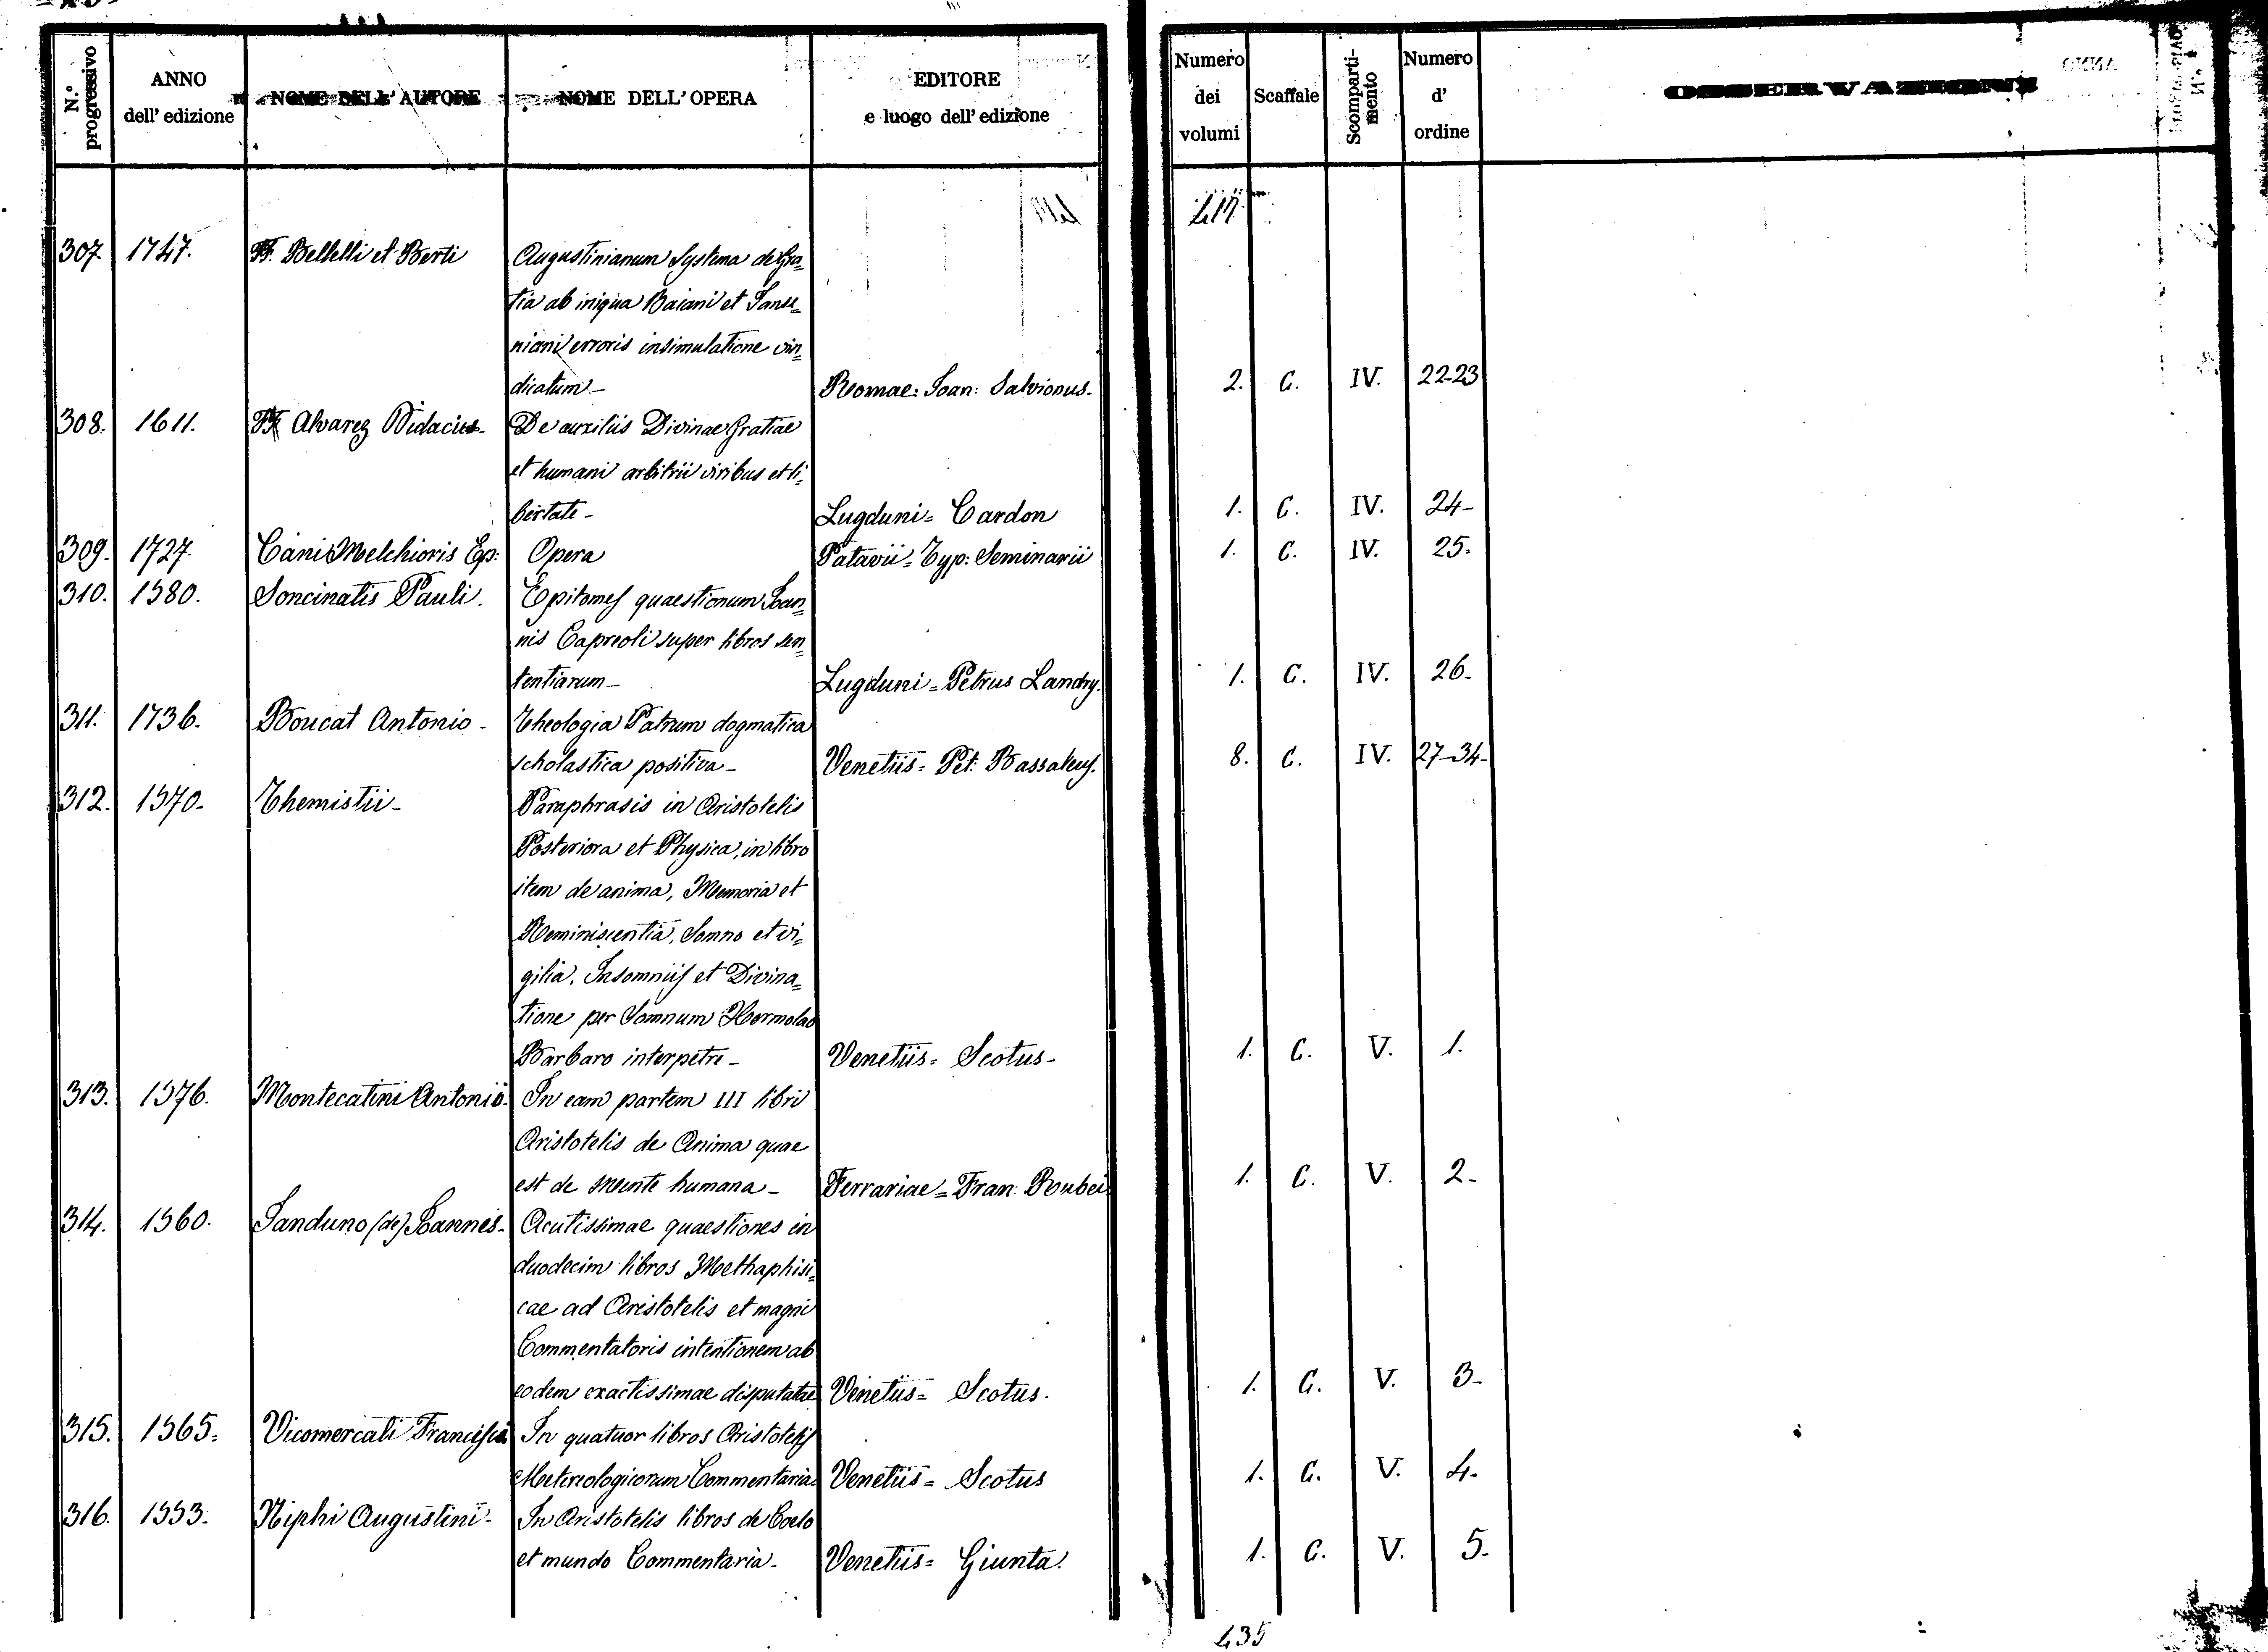 N.° progressivo
ANNO dell' edizione
NOME DELL' AUTORE
NOME DELL' OPERA
EDITORE e luogo dell' edizione
Numero dei volumi
Scaffale
Scomparti-mento
Numero d' ordine
OSSERVAZIONI
417
307. 1747. FF. Bellelli et Berti Augustinianum Systema de Gra=
tia ab iniqua Baiani et Janse=
niani erroris insimulatione vin=
dicatum- Romae: Joan: Salvionus- 2. C. IV. 22-23
308. 1611. Alvarez Didacus- De auxiliis Divinae Gratiae
et humani arbitrii viribus et li=
bertate- Lugduni= Cardon 1. C. IV. 24-
309. 1727. Cani Melchioris Ep: Opera Patavii= Typ: Seminarii 1. C. IV. 25.
310. 1580. Soncinatis Pauli. Epitomes quaestionum Joan=
nis Capreoli super libros sen=
tentiarum- Lugduni= Petrus Landry. 1. C. IV. 26-
311. 1736. Boucat Antonio- Theologia Patrum dogmatica
scholastica positiva- Venetiis= Pet: Bassaleus. 8. C. IV. 27-34-
312. 1570- Themistii- Paraphrasis in Aristotelis
Posteriora et Physica, in libro
item de anima, Memoria et
Reminiscentia, Somno et vi=
gilia, Insomniis et Divina=
tione per Somnum Hermolao
Barbaro interpetre- Venetiis= Scotus- 1. C. V. 1.
313. 1576. Montecatini Antonio- In eam partem III libri
Aristotelis de Anima quae
est de mente humana- Ferrariae= Fran: Roubei 1. C. V. 2-
314. 1560. Janduno (de) Joannes- Acutissimae quaestiones in
duodecim libros Methaphisi=
cae ad Aristotelis et magni
Commentatoris intentionem ab
eodem exactissimae disputatae Venetiis= Scotus. 1. C. V. 3-
315. 1565= Vicomercati Francisci In quatuor libros Aristotelis
Metereologicorum Commentaria Venetiis= Scotus 1. C. V. 4-
316. 1553. Niphi Augustini- In Aristotelis libros de Coelo
et mundo Commentaria- Venetiis= Giunta. 1. C. V. 5-
435